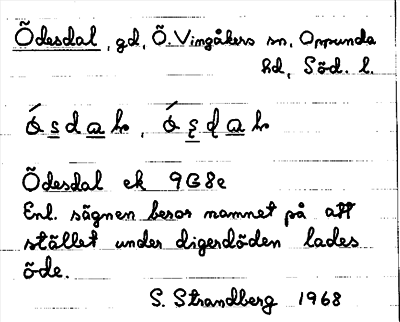 Ödesdal, gd, Ö. Vingåkers sn, Oppunda
hd, Söd. l.
Ödesdal ek 9G8e
Enl. sägnen beror namnet på att
stället under digerdöden lades
öde.
S. Strandberg 1968